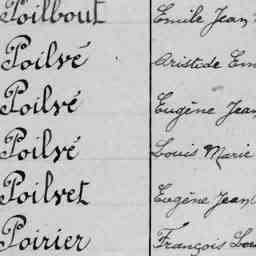 Poilbout Emile Jean
Poilvé Aristide Em
Poilvé Eugène Jean
Poilvé Louis Marie
Poilvet Eugène Jean
Poirier François Lou